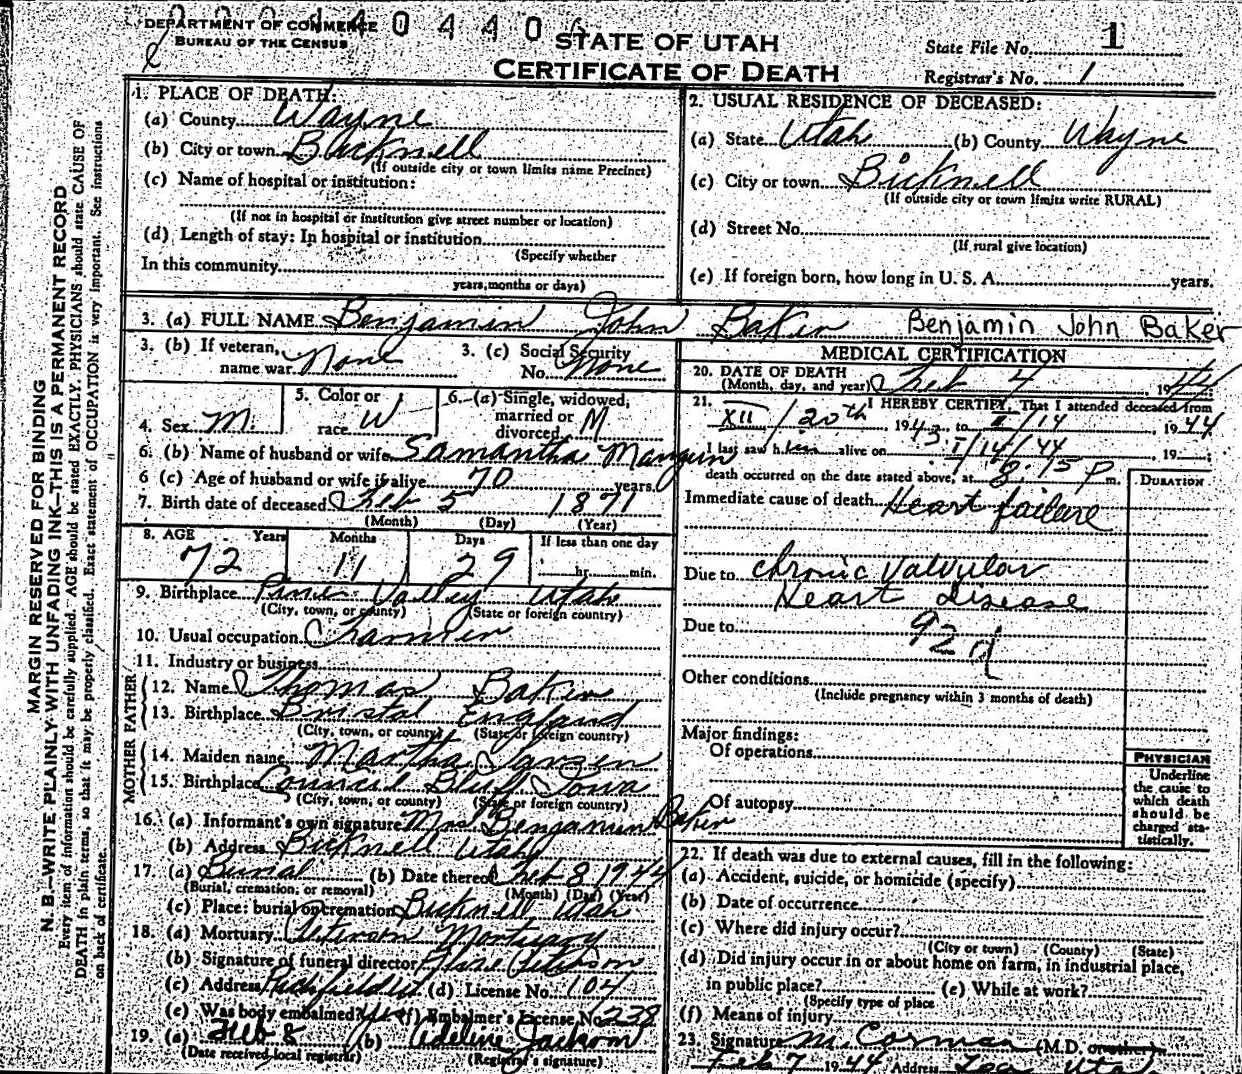 DEPARTMENT OF COMMERCE
BUREAU OF THE CENSUS
STATE OF UTAH
CERTIFICATE OF DEATH
State File No. 1
Registrar's No. 1
MARGIN RESERVED FOR BINDING
N. B.—WRITE PLAINLY WITH UNFADING INK—THIS IS A PERMANENT RECORD
Every item of information should be carefully supplied. AGE should be stated EXACTLY. PHYSICIANS should state CAUSE OF
DEATH in plain terms, so that it may be properly classified. Exact statement of OCCUPATION is very important. See instructions
on back of certificate.
1. PLACE OF DEATH:
(a) County Wayne
(b) City or town Bicknell
(If outside city or town limits name Precinct)
(c) Name of hospital or institution:
(If not in hospital or institution give street number or location)
(d) Length of stay: In hospital or institution
(Specify whether
In this community
years, months or days)
2. USUAL RESIDENCE OF DECEASED:
(a) State Utah (b) County Wayne
(c) City or town Bicknell
(If outside city or town limits write RURAL)
(d) Street No.
(If rural give location)
(e) If foreign born, how long in U. S. A. years.
3. (a) FULL NAME Benjamin John Baker Benjamin John Baker
3. (b) If veteran, name war None
3. (c) Social Security No. None
4. Sex M.
5. Color or race W
6. (a) Single, widowed, married or divorced M
6. (b) Name of husband or wife Samantha Mangum
6 (c) Age of husband or wife if alive 70 years
7. Birth date of deceased Feb 5 1871
(Month) (Day) (Year)
8. AGE Years Months Days If less than one day
72 11 29 hr. min.
9. Birthplace Pine Valley Utah
(City, town, or county) (State or foreign country)
10. Usual occupation Farmer
11. Industry or business
FATHER
12. Name Thomas Baker
13. Birthplace Bristol England
(City, town, or county) (State or foreign country)
MOTHER
14. Maiden name Martha
15. Birthplace Council Bluff Iowa
(City, town, or county) (State or foreign country)
16. (a) Informant's own signature Mrs Benjamin Baker
(b) Address Bicknell Utah
17. (a) Burial (b) Date thereof Feb 8 1944
(Burial, cremation, or removal) (Month) (Day) (Year)
(c) Place: burial or cremation Bicknell, Utah
18. (a) Mortuary Peterson Mortuary
(b) Signature of funeral director Peterson
(c) Address Richfield Ut. (d) License No. 104
(e) Was body embalmed? yes (f) Embalmer's License No. 238
19. (a) Feb 8 (b) Adeline Jackson
(Date received local registrar) (Registrar's signature)
MEDICAL CERTIFICATION
20. DATE OF DEATH
(Month, day, and year) Feb 4 1944
21. I HEREBY CERTIFY, That I attended deceased from
XII / 20th 1943, to 1/14, 1944
I last saw him alive on I/14/44, 19
death occurred on the date stated above, at 8:15 P m.
DURATION
Immediate cause of death Heart failure
Due to chronic valvular
Heart disease
Due to
92 d
Other conditions
(Include pregnancy within 3 months of death)
Major findings:
Of operations
Of autopsy
PHYSICIAN
Underline
the cause to
which death
should be
charged sta-
tistically.
22. If death was due to external causes, fill in the following:
(a) Accident, suicide, or homicide (specify)
(b) Date of occurrence
(c) Where did injury occur?
(City or town) (County) (State)
(d) Did injury occur in or about home on farm, in industrial place,
in public place? (e) While at work?
(Specify type of place
(f) Means of injury
23. Signature (M.D. or other)
Feb 7 1944 Address Loa Utah